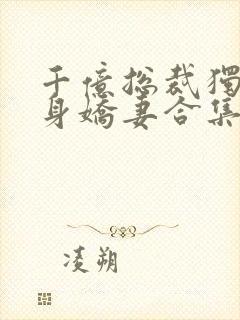 千億总裁獨
身嬌妻合集
凌朔